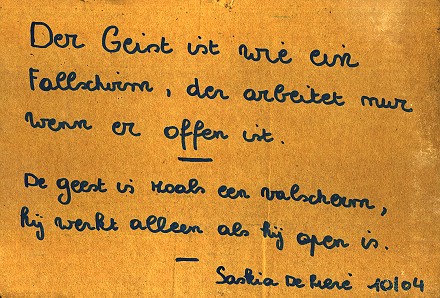 Der Geist ist wie ein
Fallschirm, der arbeitet nur
wenn er offen ist.
De geest is zoals een valscherm,
hij werkt alleen als hij open is.
Saskia De 10/04